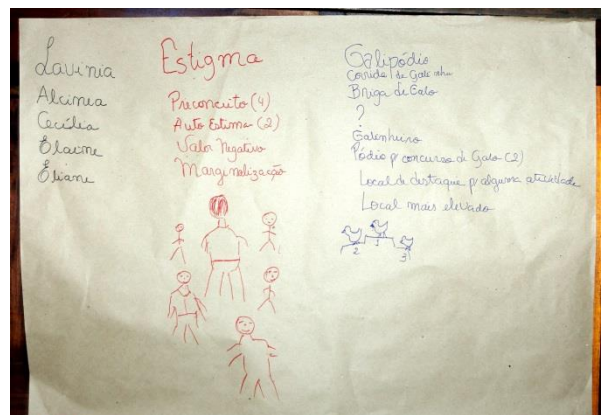 Lavinia
Alcinea
Cecília
Elaine
Eliane
Estigma
Preconceito (4)
Auto Estima (2)
Valor Negativo
Marginalização
Galipódio
Corrida de Galinha
Briga de Galo
?
Galinheiro
Pódio p/ concurso de Galo (2)
Local de destaque p/ alguma atividade
Local mais elevado
1
2
3